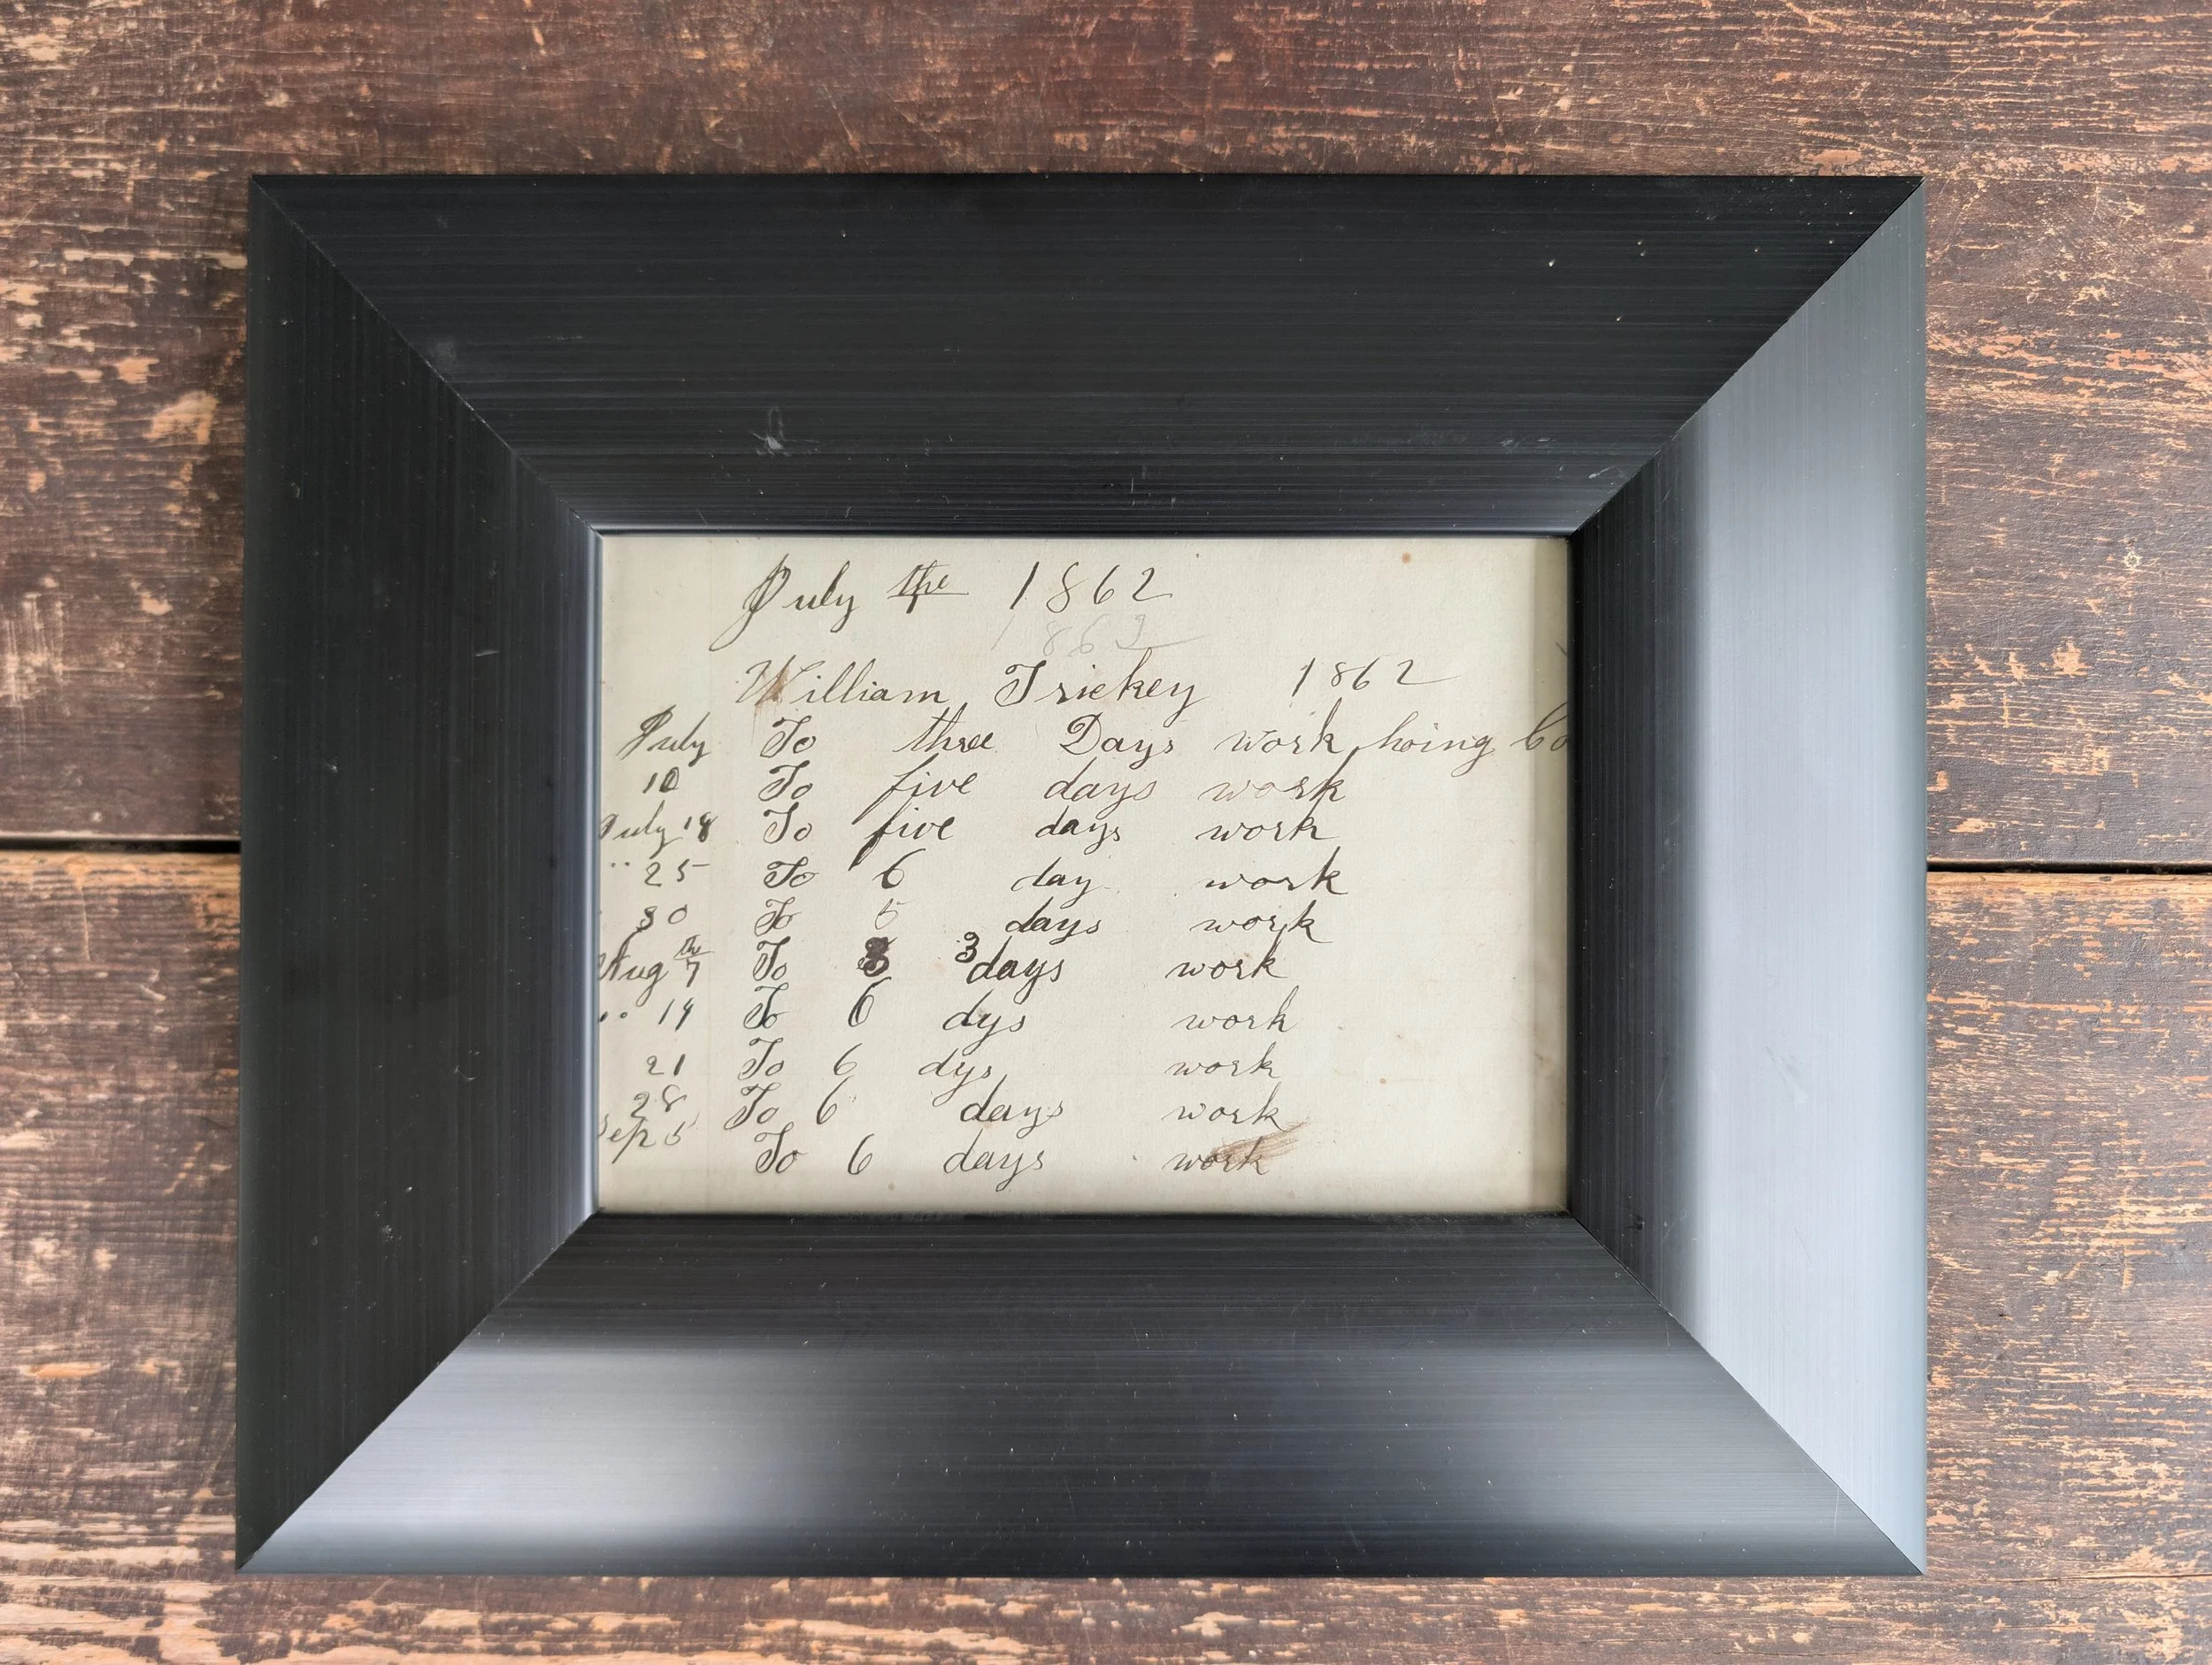 July the 1862
1863
William Trickey 1862
July To three Days work hoing
10 To five days work
July 18 To five days work
" 25 To 6 day work
30 To 5 days work
Aug th 7 To 3 days work
" 14 To 6 dys work
21 To 6 dys work
28 To 6 days work
Sep 5 To 6 days work